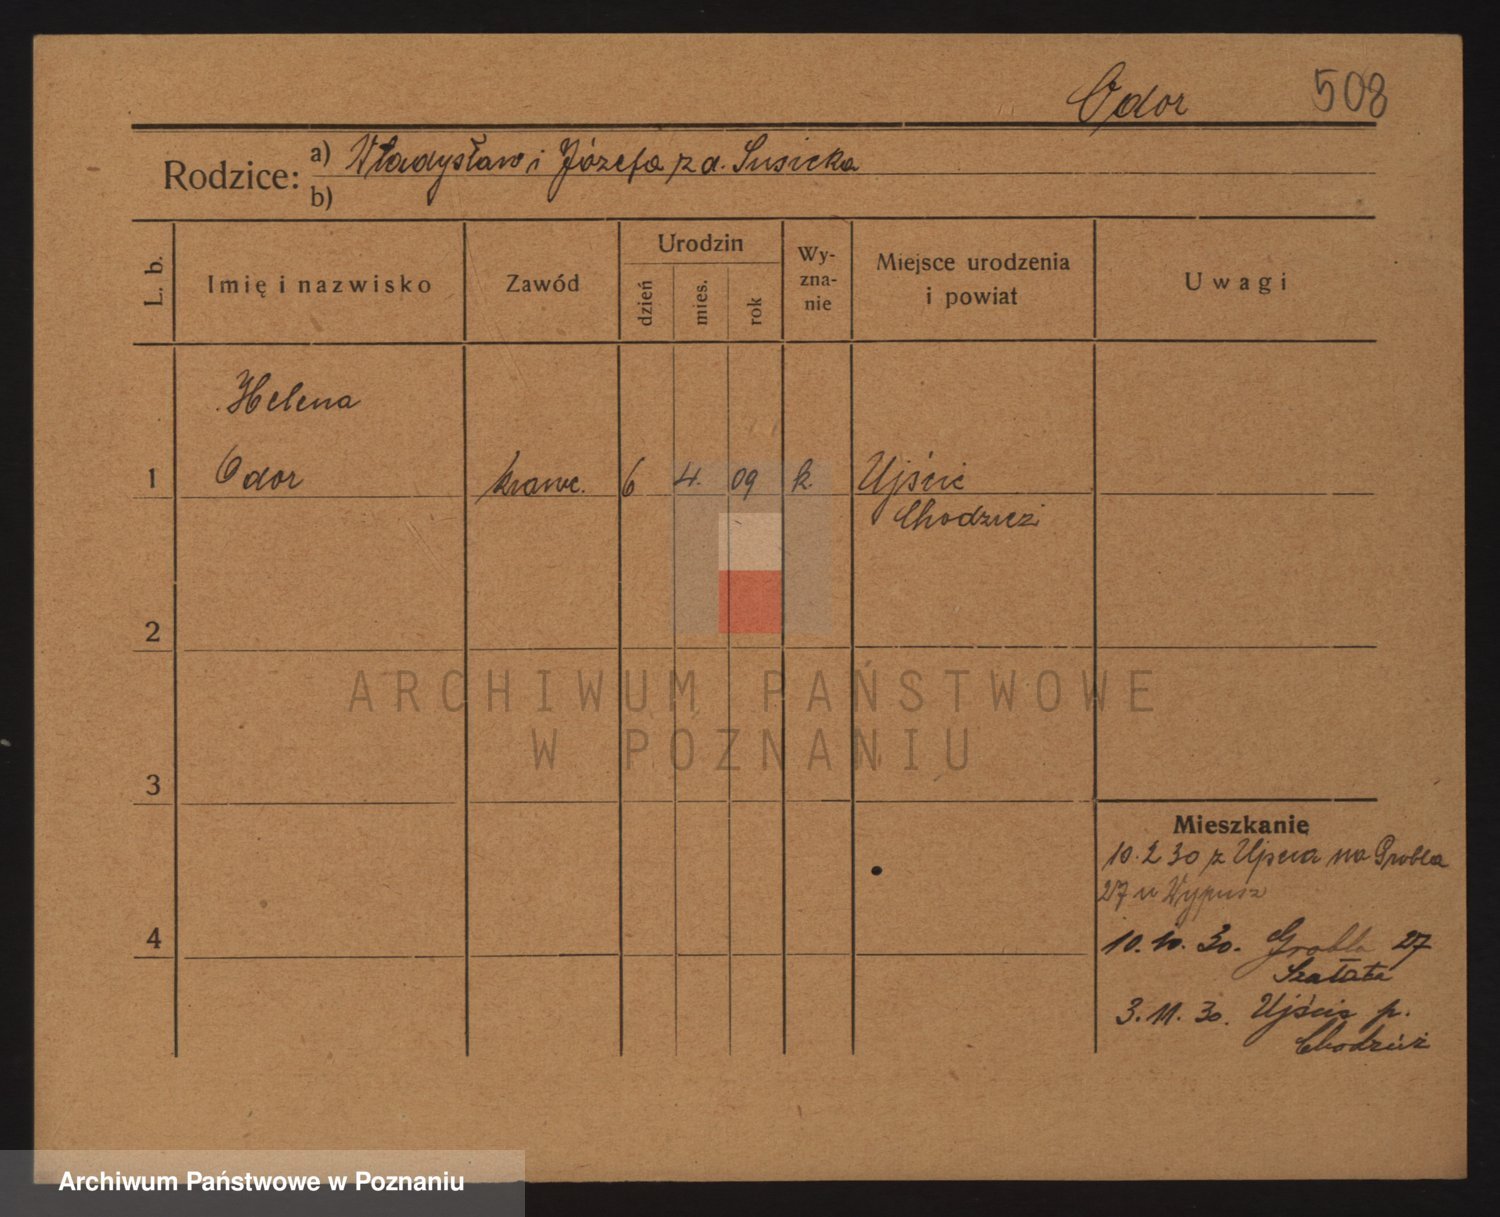 Odor 508
Rodzice: a) Władysław i Józefa z d. Susicka
b)
L. b. Imię i nazwisko Zawód Urodzin dzień mies. rok Wy-zna-nie Miejsce urodzenia i powiat Uwagi
Helena
1 Odor krawc. 6 4. 09 k. Ujście
Chodzież
2
ARCHIWUM PAŃSTWOWE
W POZNANIU
3
Mieszkanie
10. 2 30 z Ujścia na Grobla
27 u Wypusz
4 10. 10. 30. Grobla 27
Szałata
3. 11. 30. Ujście p.
Chodzież
Archiwum Państwowe w Poznaniu